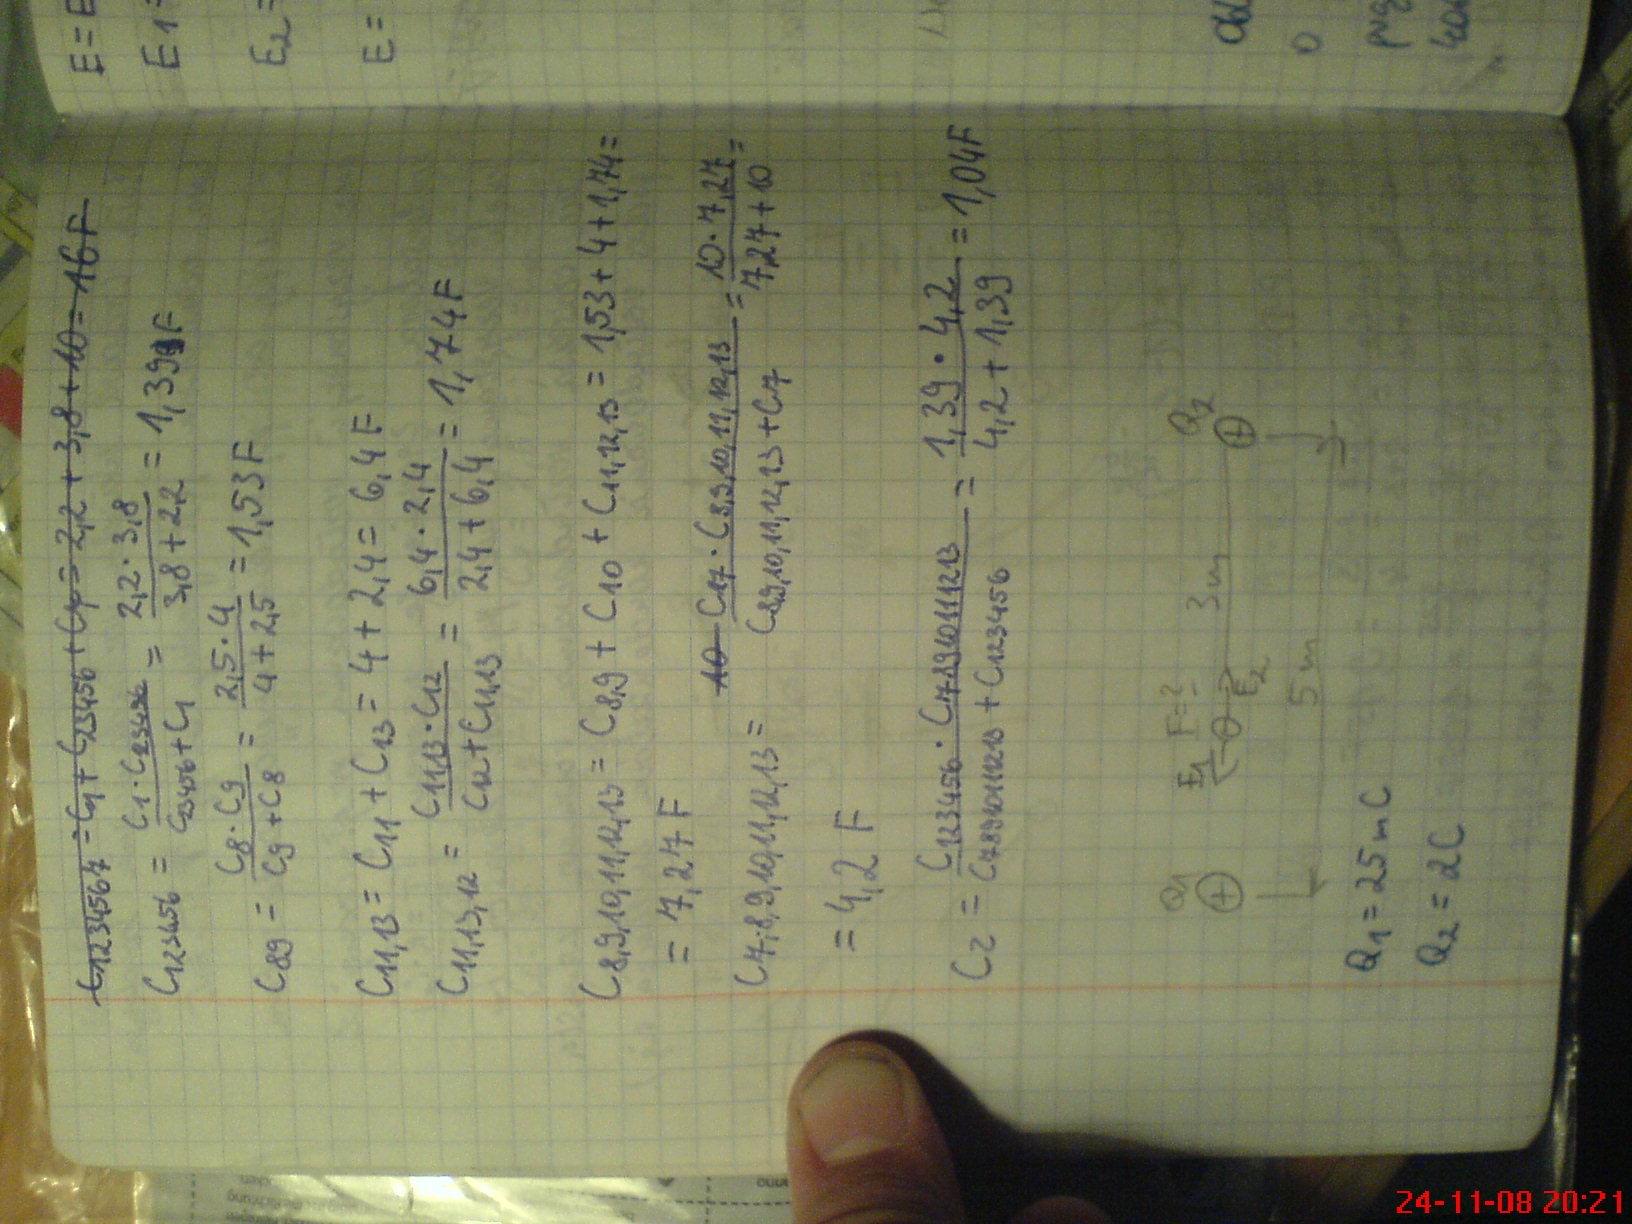 C1234567 = C1 + C23456 + C7 = 2,2 + 3,8 + 10 = 16F
C123456 = C1 · C23456 / C23456 + C1 = 2,2 · 3,8 / 3,8 + 2,2 = 1,39F
C89 = C8 · C9 / C9 + C8 = 2,5 · 4 / 4 + 2,5 = 1,53F
C11,13 = C11 + C13 = 4 + 2,4 = 6,4F
C11,13,12 = C11,13 · C12 / C12 + C11,13 = 6,4 · 2,4 / 2,4 + 6,4 = 1,74F
C8,9,10,11,12,13 = C8,9 + C10 + C11,12,13 = 1,53 + 4 + 1,74 =
= 7,27F
C7,8,9,10,11,12,13 = 10 C17 · C8,9,10,11,12,13 / C8,9,10,11,12,13 + C17 = 10 · 7,27 / 7,27 + 10 =
= 4,2F
Cz = C123456 · C78910111213 / C78910111213 + C123456 = 1,39 · 4,2 / 4,2 + 1,39 = 1,04F
Q1 E1 F=? E2 3m Q2
5m
Q1 = 25mC
Q2 = 2C
E =
E1 =
E2 =
E =
24-11-08 20:21